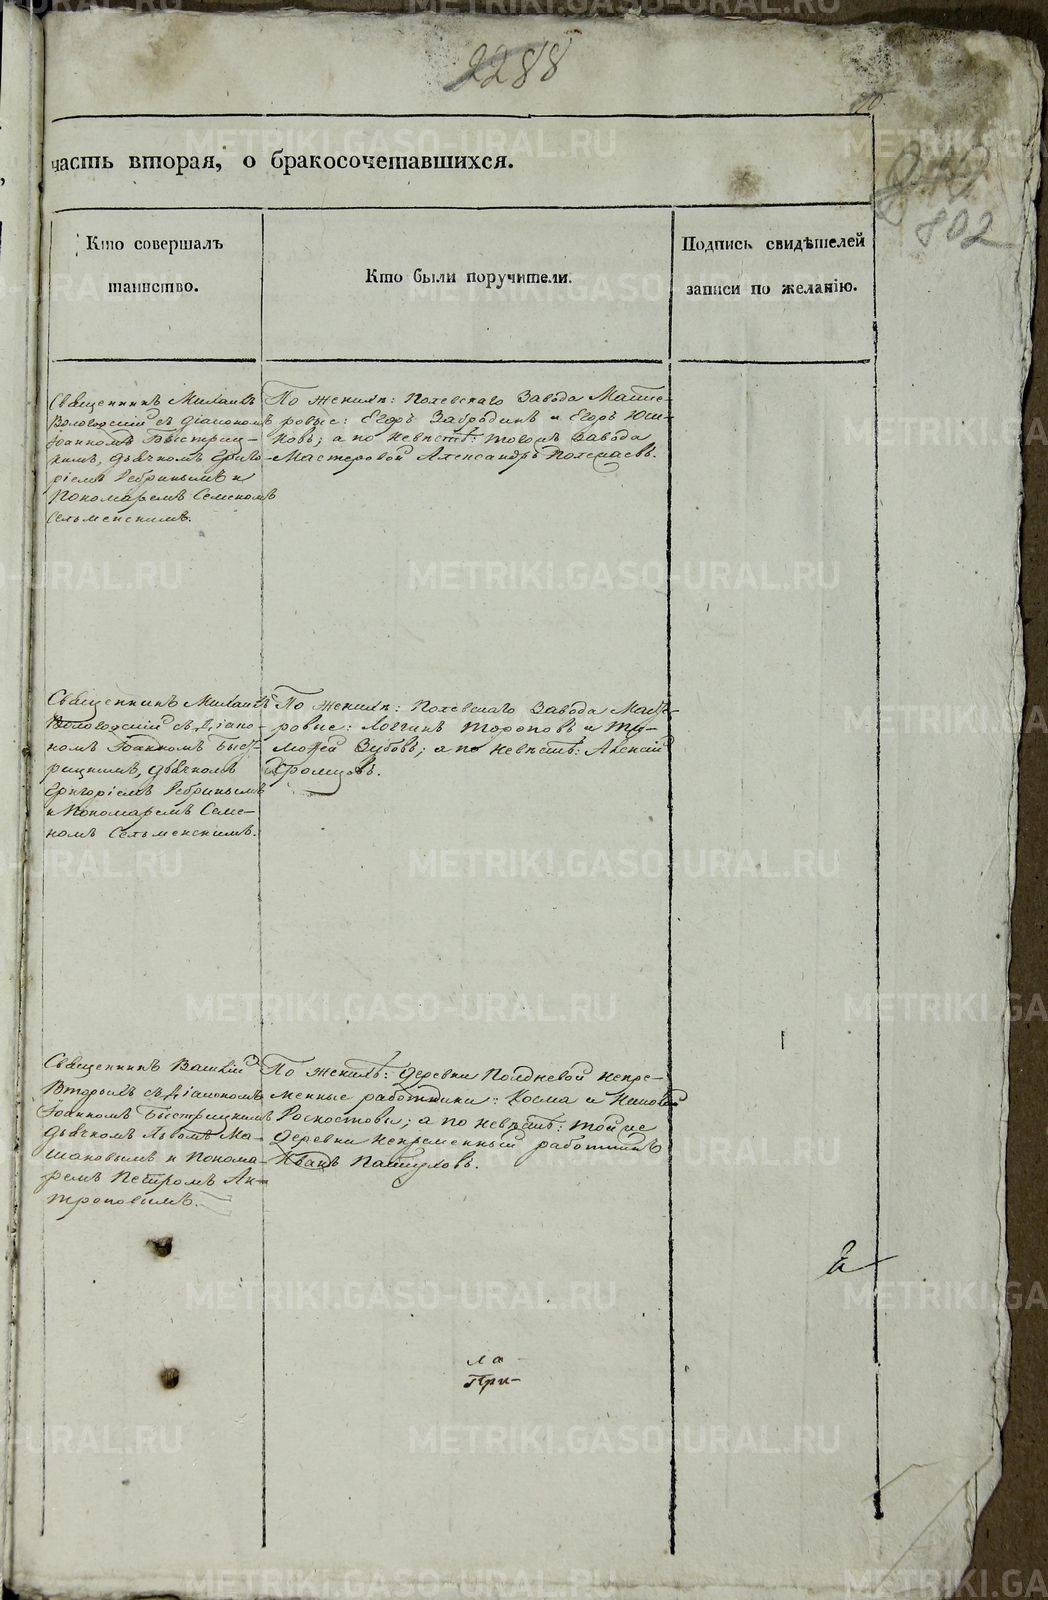 2288
70
802
часть вторая, о бракосочетавшихся.
Кто совершалъ
таинство.
Кто были поручители.
Подпись свидѣтелей
записи по желанію.
Священникъ Михаилъ
Вологодскій съ діакономъ
Іоанномъ Быстриц-
кимъ, дьячкомъ Григо-
ріемъ Ребринымъ и
Пономаремъ Семеномъ
Сельменскимъ.
По женихѣ: Полевскаго Завода Масте-
ровые: Егоръ Забродинъ и Егоръ Юш-
ковъ; а по невѣстѣ: тогожъ Завода
Мастеровой Александръ Полежаевъ.
Священникъ Михаилъ
Вологодскій съ Діако-
номъ Іоанномъ Быст-
рицкимъ, дьячкомъ
Григоріемъ Ребринымъ
и Пономаремъ Семе-
номъ Сельменскимъ.
По женихѣ: Полевскаго Завода Масте-
ровые: Логгинъ Тороповъ и Ти-
мофей Зубовъ; а по невѣстѣ: Алексѣй
Хромцовъ.
Священникъ Василій
Вторыхъ съ Діакономъ
Іоанномъ Быстрицкимъ
Дьячкомъ Львомъ Ма-
шановымъ и Понома-
ремъ Петромъ Ан-
троповымъ.
По женихѣ: деревни Полдневой непре-
менные работники: Косма и
Роскостовы; а по невѣстѣ: той же
деревни непременный работникъ
Иванъ Пастуховъ.
ла
При-